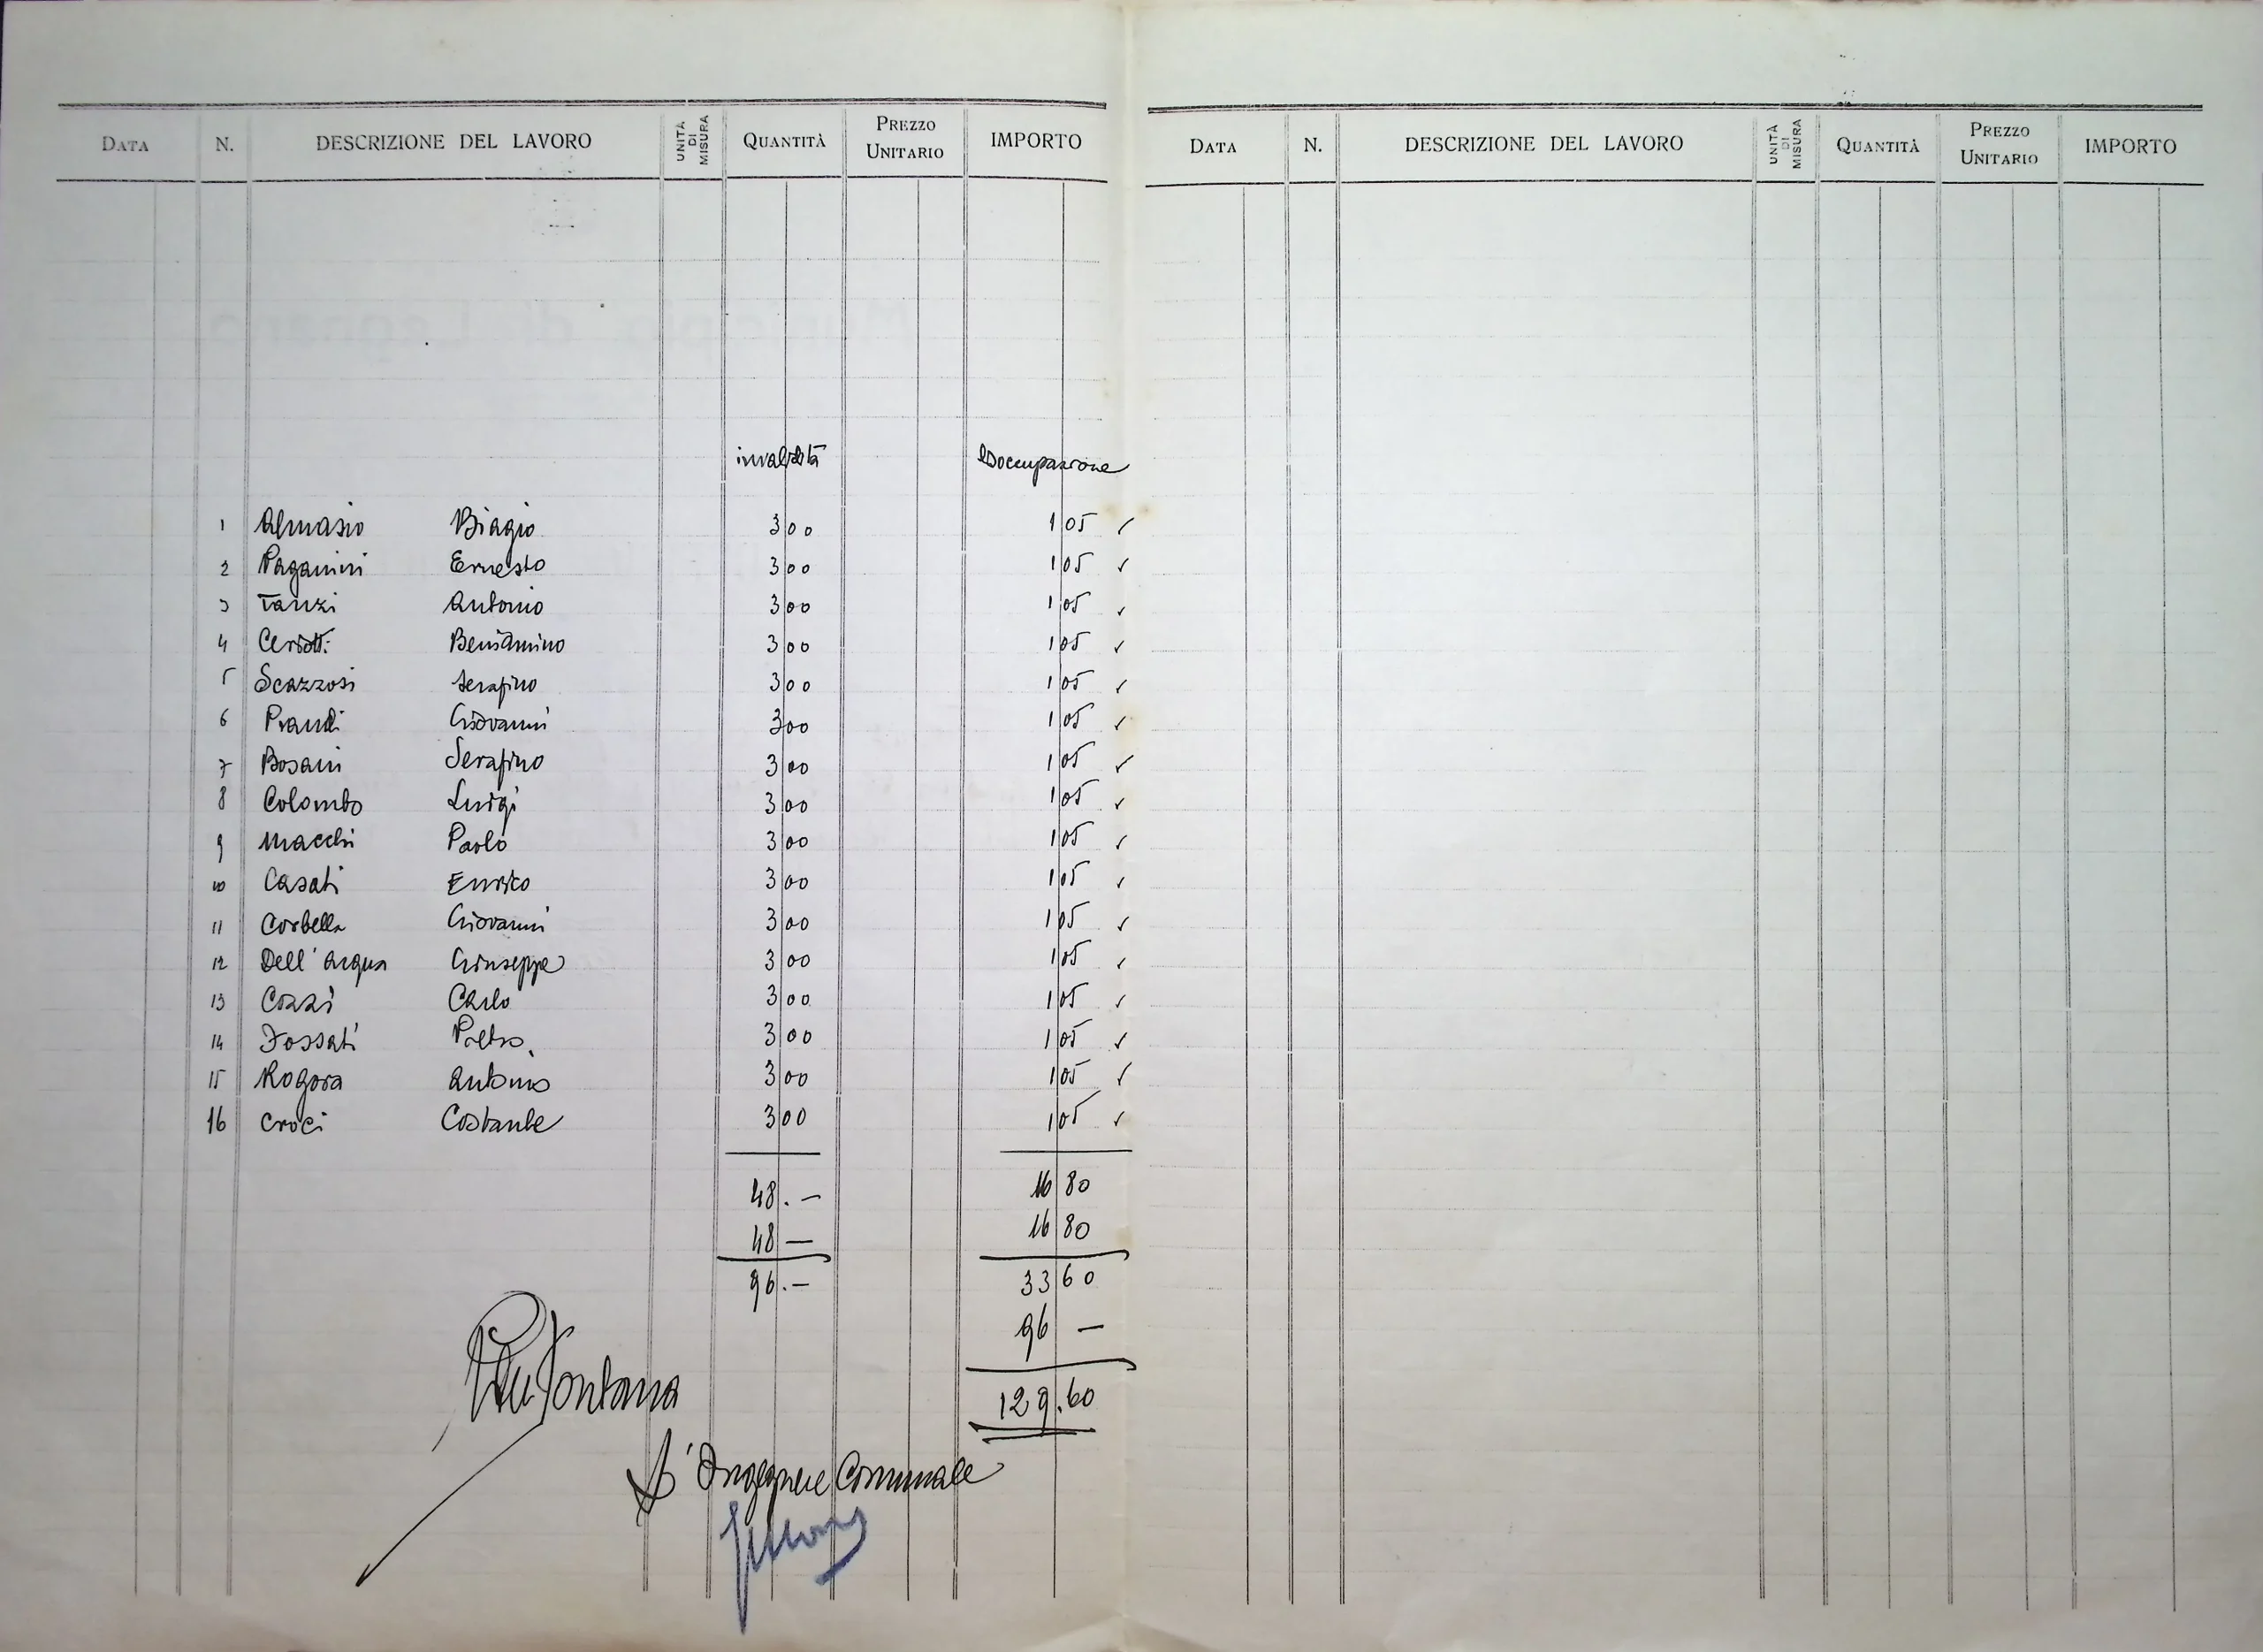 DATA N. DESCRIZIONE DEL LAVORO UNITÀ DI MISURA QUANTITÀ PREZZO UNITARIO IMPORTO
invalidità Disoccupazione
1 Almasio Biagio 3 00 1 05 ✓
2 Paganini Ernesto 3 00 1 05 ✓
3 Tanzi Antonio 3 00 1 05 ✓
4 Ceriotti Beniamino 3 00 1 05 ✓
5 Scazzosi Serafino 3 00 1 05 ✓
6 Prandi Giovanni 3 00 1 05 ✓
7 Bosani Serafino 3 00 1 05 ✓
8 Colombo Luigi 3 00 1 05 ✓
9 Macchi Paolo 3 00 1 05 ✓
10 Casati Enrico 3 00 1 05 ✓
11 Corbella Giovanni 3 00 1 05 ✓
12 Dell'Acqua Giuseppe 3 00 1 05 ✓
13 Cozzi Carlo 3 00 1 05 ✓
14 Fossati Pietro. 3 00 1 05 ✓
15 Rogora Antonio 3 00 1 05 ✓
16 Croci Costante 3 00 1 05 ✓
48.— 16 80
48 — 16 80
96.— 33 60
96 —
129.60
Fontana
L'Ingegnere Comunale
DATA N. DESCRIZIONE DEL LAVORO UNITÀ DI MISURA QUANTITÀ PREZZO UNITARIO IMPORTO